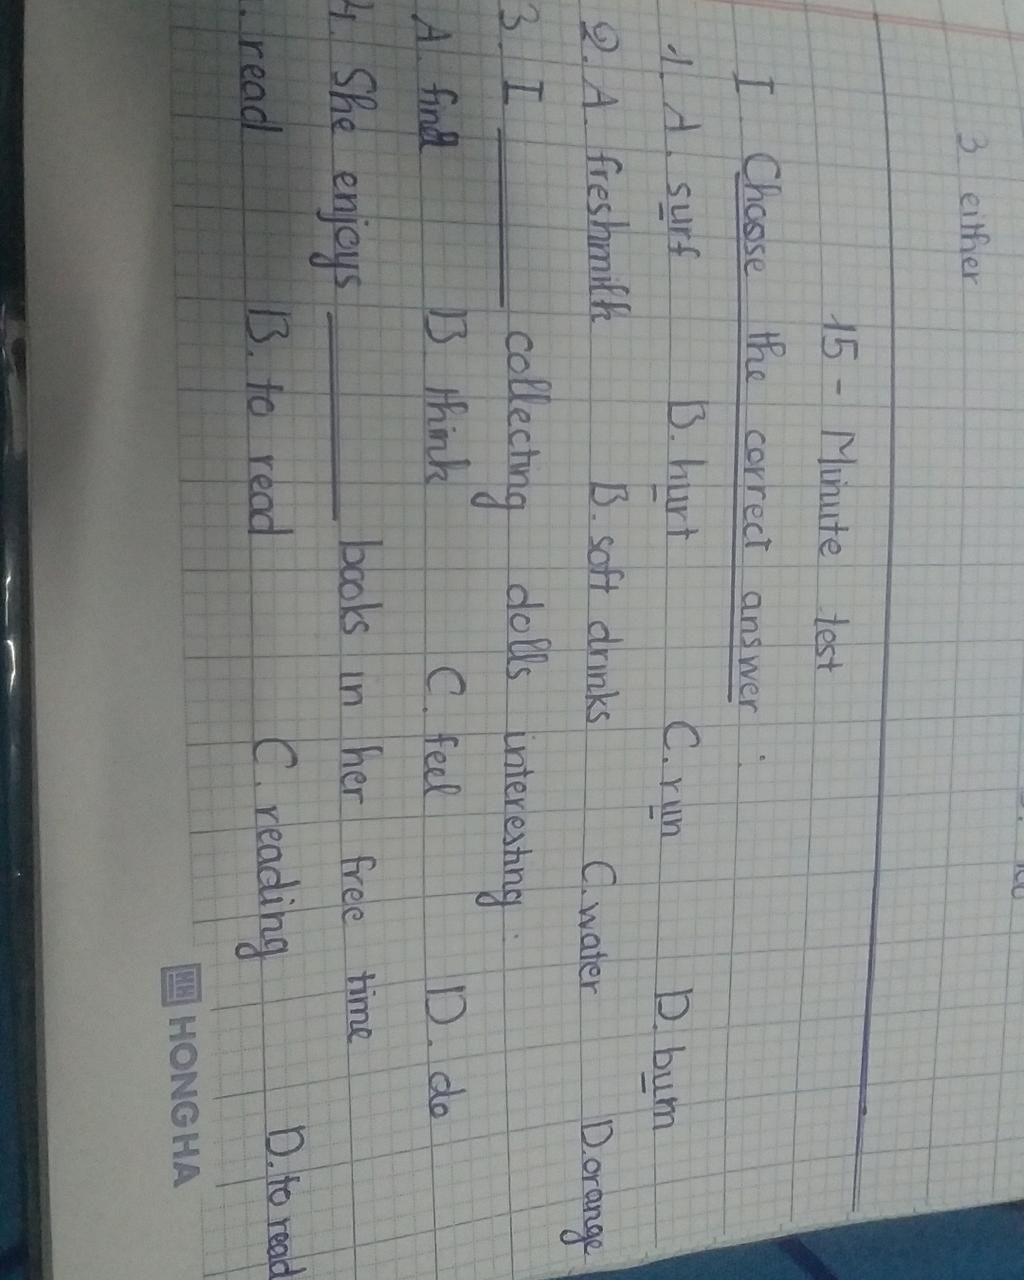 3 either
15 - Minute test
I Choose the correct answer:
1. A. surf B. hurt C. run D. burn
2. A. freshmilk B. soft drinks C. water D. orange
3. I ______ collecting dolls interesting.
A. find B think C. feel D. do
4. She enjoys ______ books in her free time
. read B. to read C. reading D. to read
HONG HA